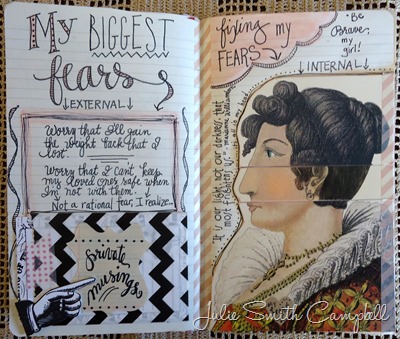 My BIGGEST
fears
↓EXTERNAL↓
Worry that I'll gain
the weight back that I
lost.
Worry that I can't keep
my loved ones safe when
I'm not with them.
Not a rational fear, I realize...
private
musings
fixing my
FEARS
"Be
Brave,
my
girl!"
↓INTERNAL↓
It is our light, not our darkness, that
most frightens us. - marianne williamson
it's all in your head.
Julie Smith Campbell